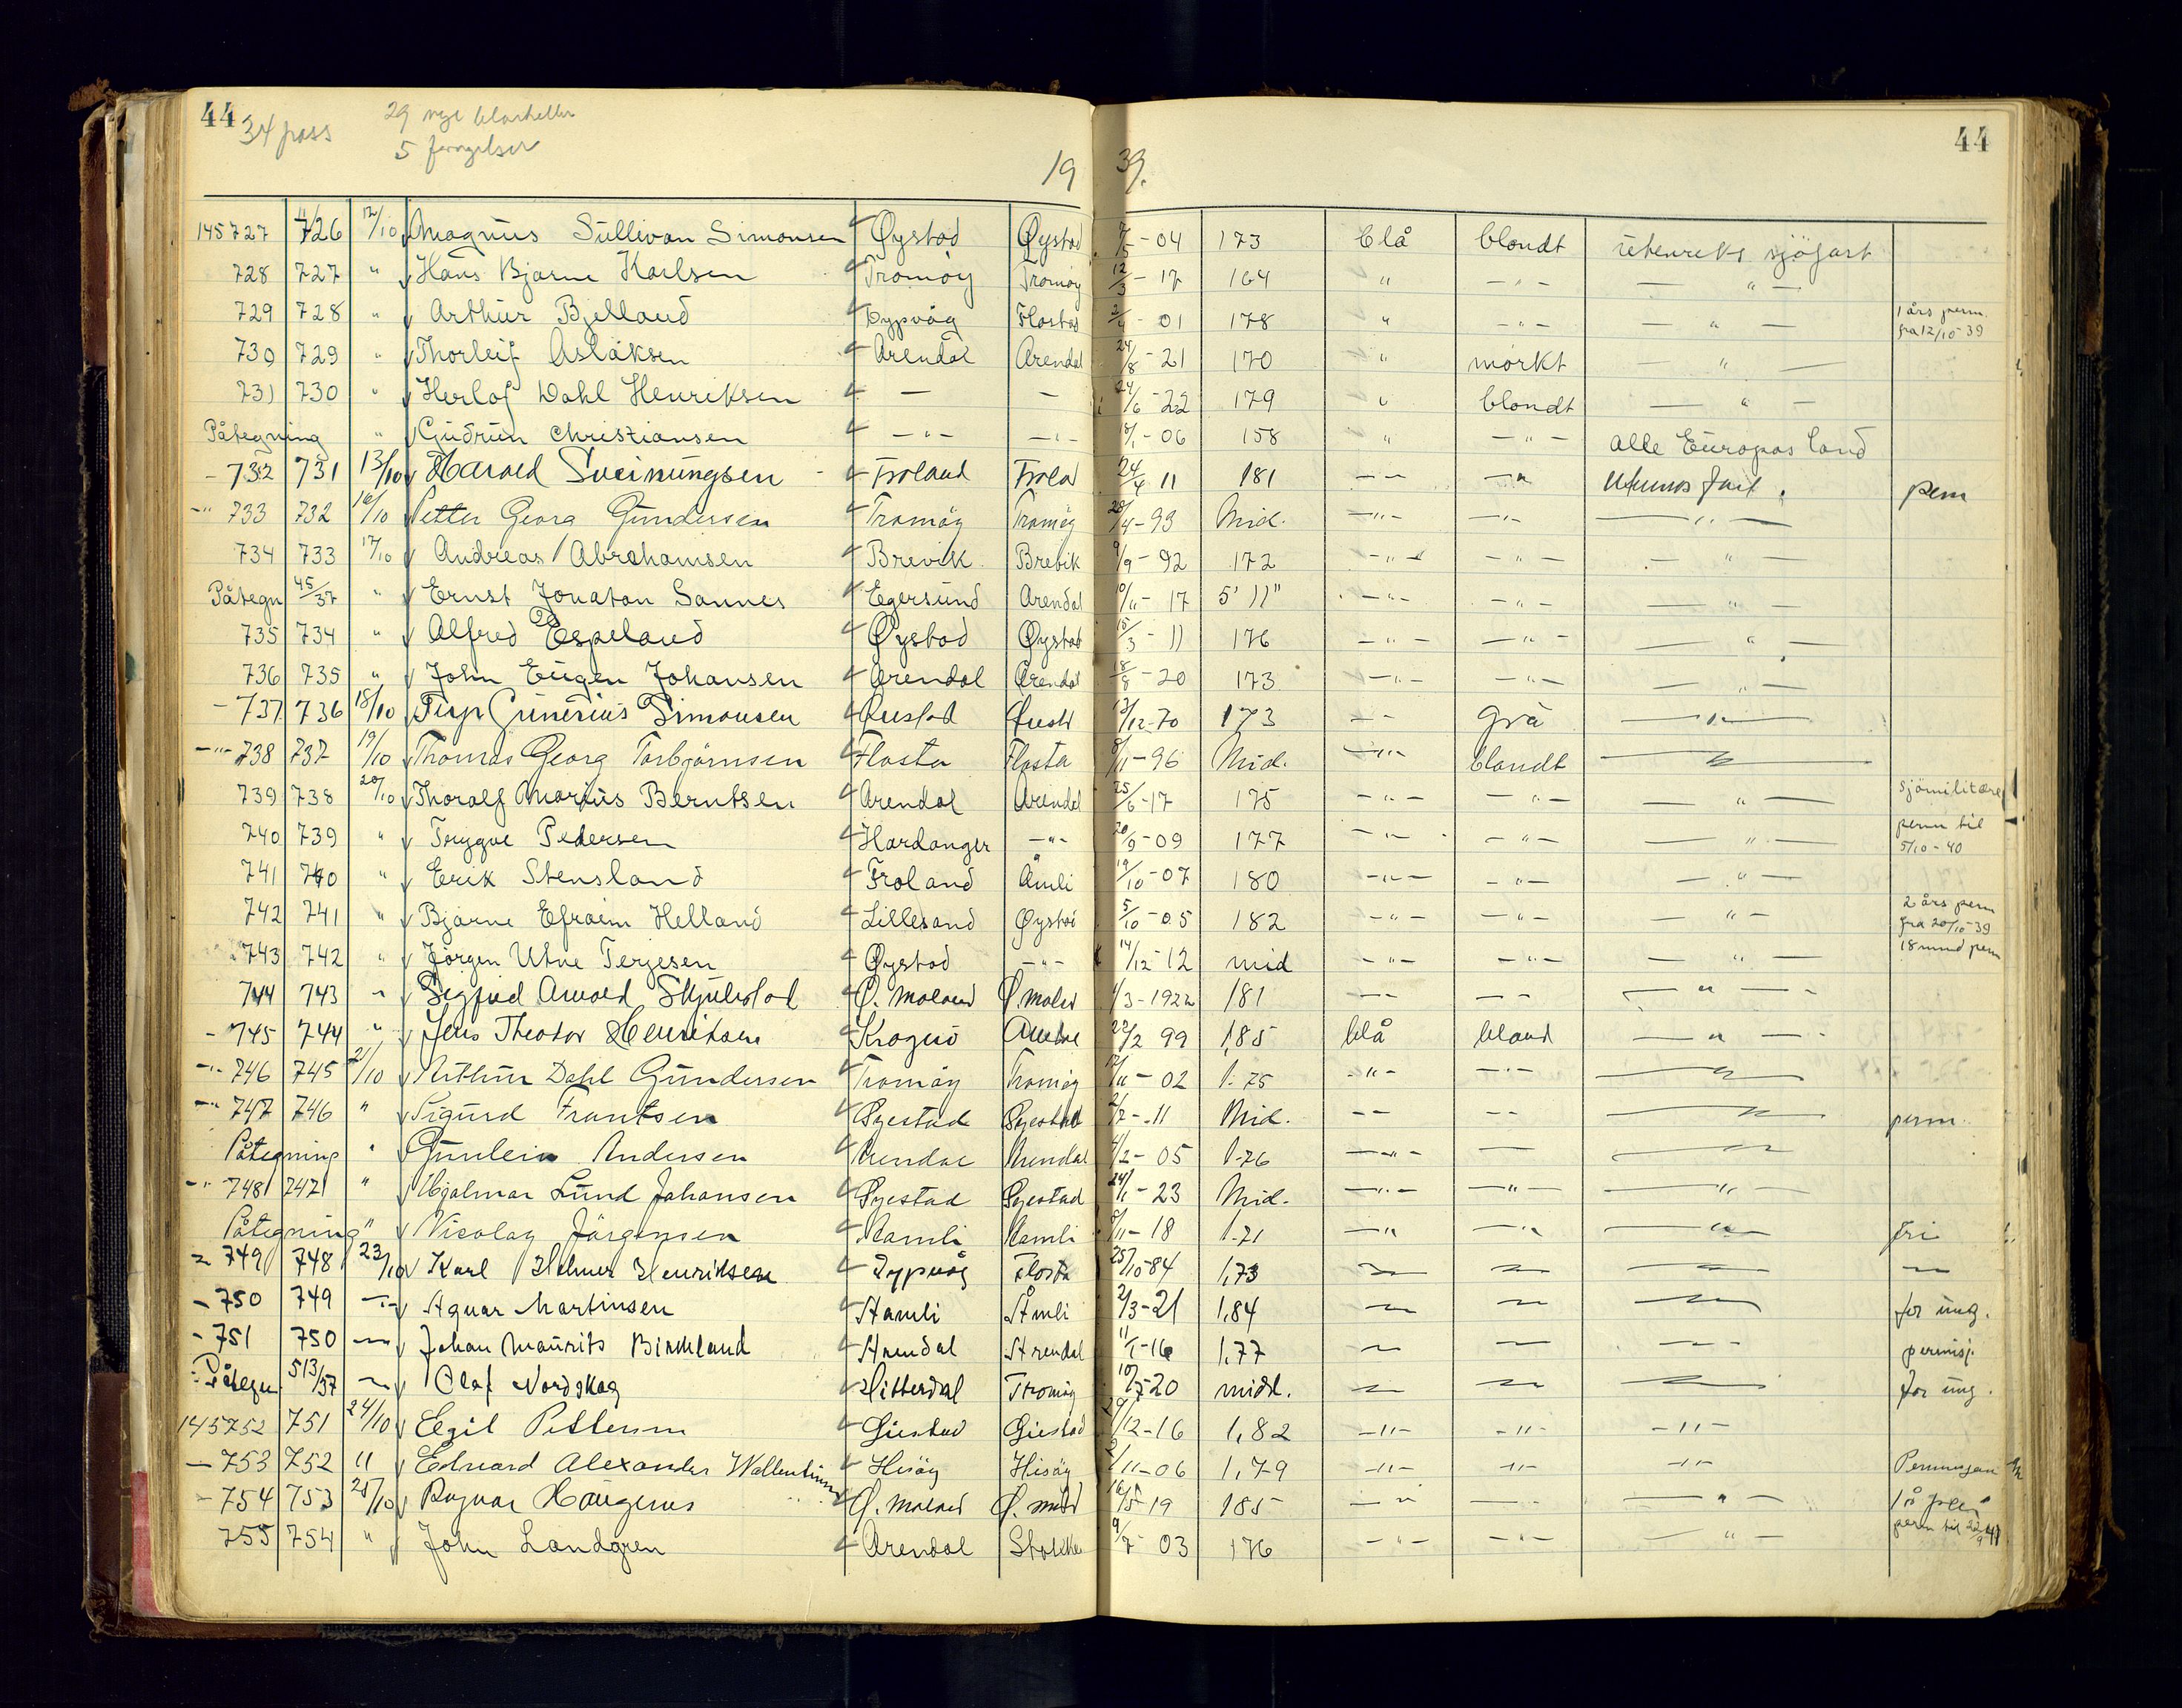 44 34 pass 29 nye blanketter 44
5 fornyelser
19 39.
145727 726 12/10 Magnus Sullivan Simonsen Øystad Øystad 7/5-04 173 blå blondt utenriks sjöfart
728 727 " Hans Bjarne Karlsen Tromöy Tromöy 12/3-17 164 " -"- -"-
729 728 " Arthur Bjelland Dypvåg Flosta 2/4-01 178 " -"- -"- 1 års perm. fra 12/10-39
730 729 " Thorleif Aslaksen Arendal Arendal 24/8-21 170 " mörkt -"-
731 730 " Herlof Dahl Henriksen - - 24/6-22 179 " blondt -"-
Påtegning " Gudrun Christiansen -"- -"- 18/1-06 158 " -"- alle Europas land
-732 731 13/10 Harald Sveinungsen Froland Frola 24/4 11 181 -"- -"- perm
-"-733 732 16/10 Petter Georg Gundersen Tromöy Tromöy 28/4-93 Mid. -"- -"- -"-
734 733 17/10 Andreas Abrahamsen Brevik Brevik 9/9-92 172 -"- -"- -"-
Påtegn 45/37 " Ernst Jonatan Sannes Egersund Arendal 10/11-17 5' 11" -"- -"- -"-
735 734 " Alfred Espeland Øystad Øystad 15/3-11 176 -"- -"- -"-
736 735 " John Eugen Johansen Arendal Arendal 18/8-20 173 -"- -"- -"-
-737 736 18/10 Simonsen 13/12-70 173 -"- grå -"-
-"-738 737 19/10 Thomas Georg Torbjörnsen Flosta Flosta 8/11-96 Mid. -"- blondt -"-
739 738 20/10 Thoralf Marius Berntsen Arendal Arendal 25/6-17 175 -"- -"- -"- sjömilitære
740 739 " Trygve Pedersen Hardanger -"- 20/9-09 177 -"- -"- -"- perm til 5/10-40
741 740 " Erik Stensland Froland Åmli 19/10-07 180 -"- -"- -"-
742 741 " Bjarne Efraim Helland Lillesand Øystad 5/10-05 182 -"- -"- -"- 2 års perm fra 20/10-39
743 742 " Jörgen Utne Terjesen Øystad -"- 14/12-12 mid -"- -"- -"- 18 mnd perm
744 743 " Sigfred Arnold Ø. Moland Ø. Mold 1/3-1922 181 -"- -"- -"-
-745 744 " Jens Theodor Henriksen Kragerö 22/2 99 1,85 blå blond -"-
-"-746 745 21/10 Arthur Dahl Gundersen Tromöy Tromöy 12/11-02 1.75 -"- -"- -"-
-"-747 746 " Sigurd Frantsen Øyestad Øyestad 2/7-11 Mid. -"- -"- -"- perm.
Påtegning " Gunleik Andersen Arendal Arendal 4/2-05 1.76 -"- -"- -"-
-"-748 747 " Hjalmar Lund Johansen Øyestad Øyestad 24/1-23 Mid. -"- -"- -"-
Påtegning " Nicolay Jörgensen Aamli Aamli 8/11-18 1.71 -"- -"- -"- fri
-"-749 748 23/10 Karl Helmer Henriksen Dypvåg Flosta 25/10-84 1,73 -"- -"- -"- -"-
-750 749 -"- Agnar Martinsen Aamli Åmli 2/3-21 1,84 -"- -"- -"- for ung.
-751 750 -"- Johan Maurits Birkeland Arendal Arendal 11/1-16 1,77 -"- -"- -"- permisj.
Påtegn. 513/37 -"- Olaf Nordskag Hitterdal Tromöy 10/7-20 midd. -"- -"- -"- for ung.
145752 751 24/10 Egil Pettersen 29/12-16 1,82 -"- -"- -"-
-753 752 " Edvard Alexander Wallentinsen Hisöy Hisöy 2/11-06 1,79 -"- -"- -"-
-754 753 25/10 Ragnar Haugenes Ø. Moland Ø. Mld 16/5-19 185 -"- -"- -"-
755 754 " John Landgren Arendal Stokke 9/7 03 176 -"- -"- -"- perm til 22/9 41